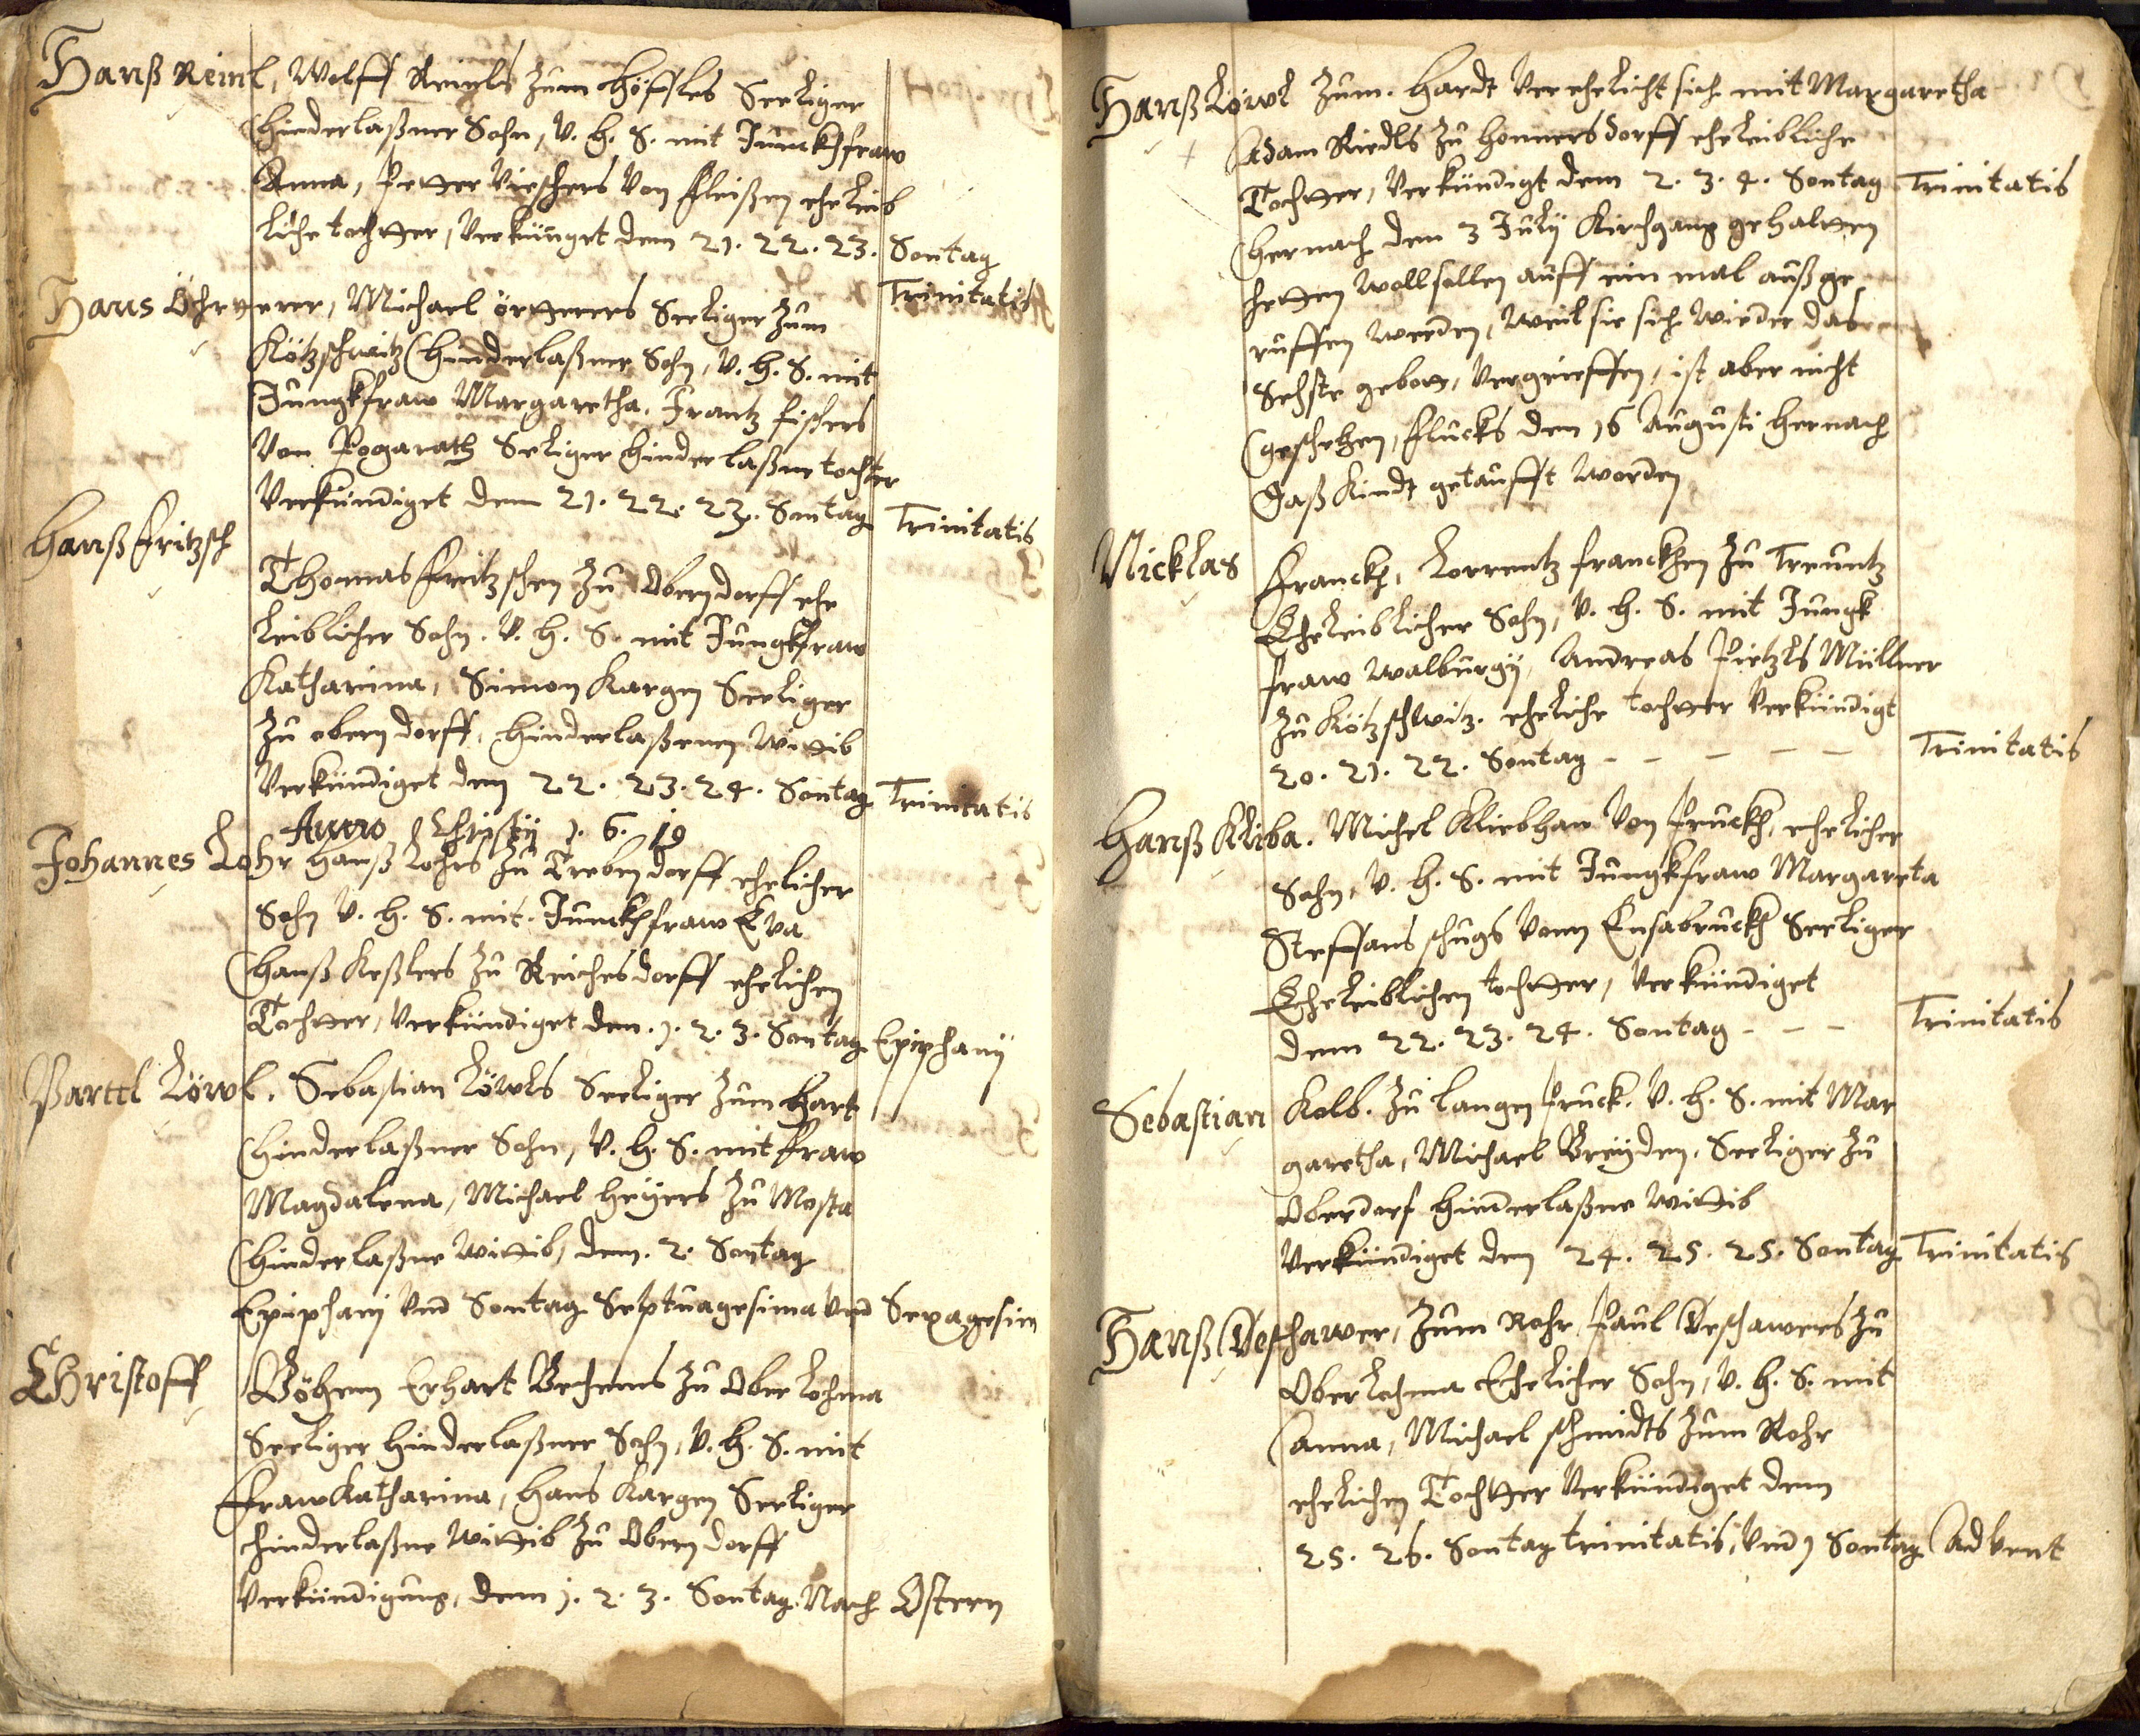 Hanß Reinl, Wolff Reinls zum Höffles Seeliger
hinderlaßner Sohn, V. h. S. mit Junckhfraw
Anna, Petter Vischers von Fleißen eheleib
liche tochtter, Verkünget dem 21. 22. 23. Sontag
Trinitatis
Hans Öhrtterer, Michael örtterers Seeliger zum
Kötzschwitz hinderlaßner Sohn, V. h. S. mit
Jungkfraw Margaretha, Frantz Fischers
Von Pograth Seeliger hinderlaßne tochter
Verkündiget dem 21. 22. 23. Sontag Trinitatis
Hanß Fritzsch
Thomas Fritzschen zu Oberndorff ehe
leiblicher Sohn. V. h. S. mit Jungkfraw
Katharina, Simon Kargen Seeliger
zu oberndorff, hinderlaßenen Wittib
Verkündiget dem 22. 23. 24. Sontag Trinitatis
Anno Christÿ 1. 6. 19
Johannes Lohr Hanß Lohrs zu Trebendorff ehelicher
Sohn V. h. S. mit Junckhfraw Eva
Hanß Keßlers zu Reichesdorff ehelichen
Tochtter, Verkündiget den. 1. 2. 3. Sontag Epiphanÿ
Barttl Löwl. Sebastian Löwls Seeliger zum Hart
hinderlaßner Sohn, V. h. S. mit Fraw
Magdalena, Michael Heÿers zu Mosta
hinderlaßne Wittib, dem. 2. Sontag
Epiphanj Vnd Sontag Septuagesima Vnd Sexagesim
Christoff Böhem Erhart Behems zu Oberlohma
Seeliger hinderlaßner Sohn, V. h. S. mit
Fraw Katharina, Hans Kargen Seeliger
hinderlaßne Wittib zu Oberndorff
Verkündigung, dem 1. 2. 3. Sontag Nach Ostern
Hanß Löwl zum. Hardt Verehelicht sich mit Margaretha
Adam Riedls zu Honnersdorff eheleibliche
Tochtter, Verkündigt dem 2. 3. 4. Sontag Trinitatis
hernach den 3 Julÿ Kirchgang gehaltten
hetten woll sollen auff ein mal auß ge
ruffen werden, weil sie sich wieder das
Sechste gebott, Vergrieffen, ist aber nicht
geschehen, flucks den 16 Augusti hernach
Daß Kindt getaufft worden
Nicklas Franckh, Lorrentz Franckhen zu Treuntz
Eheleiblicher Sohn, V. h. S. mit Jungk
fraw Walburgÿ, Andreas Pietzls Müllner
zu Kötzschwitz. eheliche tochtter Verkündigt
20. 21. 22. Sontag - - - - - Trinitatis
Hanß Kliba. Michel Kliebhan Von Pruckh, ehelicher
Sohn, V. h. S. mit Jungkfraw Margareta
Steffans schugs Vonn Ensabruckh Seeliger
Eheleiblichen tochtter, Verkündiget
dem 22. 23. 24. Sontag - - - Trinitatis
Sebastian Kolb. zu langen Pruck. V. h. S. mit Mar
garetha, Michael Breÿden, Seeliger zu
Oberdorf hinderlaßne Wittib
Verkündiget den 24. 25. 25. Sontag Trinitatis
Hanß Deschawer, zum Rohr Paul Deschawers zu
Oberlohma Ehelicher Sohn, V. h. S. mit
Anna, Michael schmidts zum Rohr
ehelichen Tochtter Verkündiget dem
25. 26. Sontag trinitatis, Vnd 1 Sontag Advent